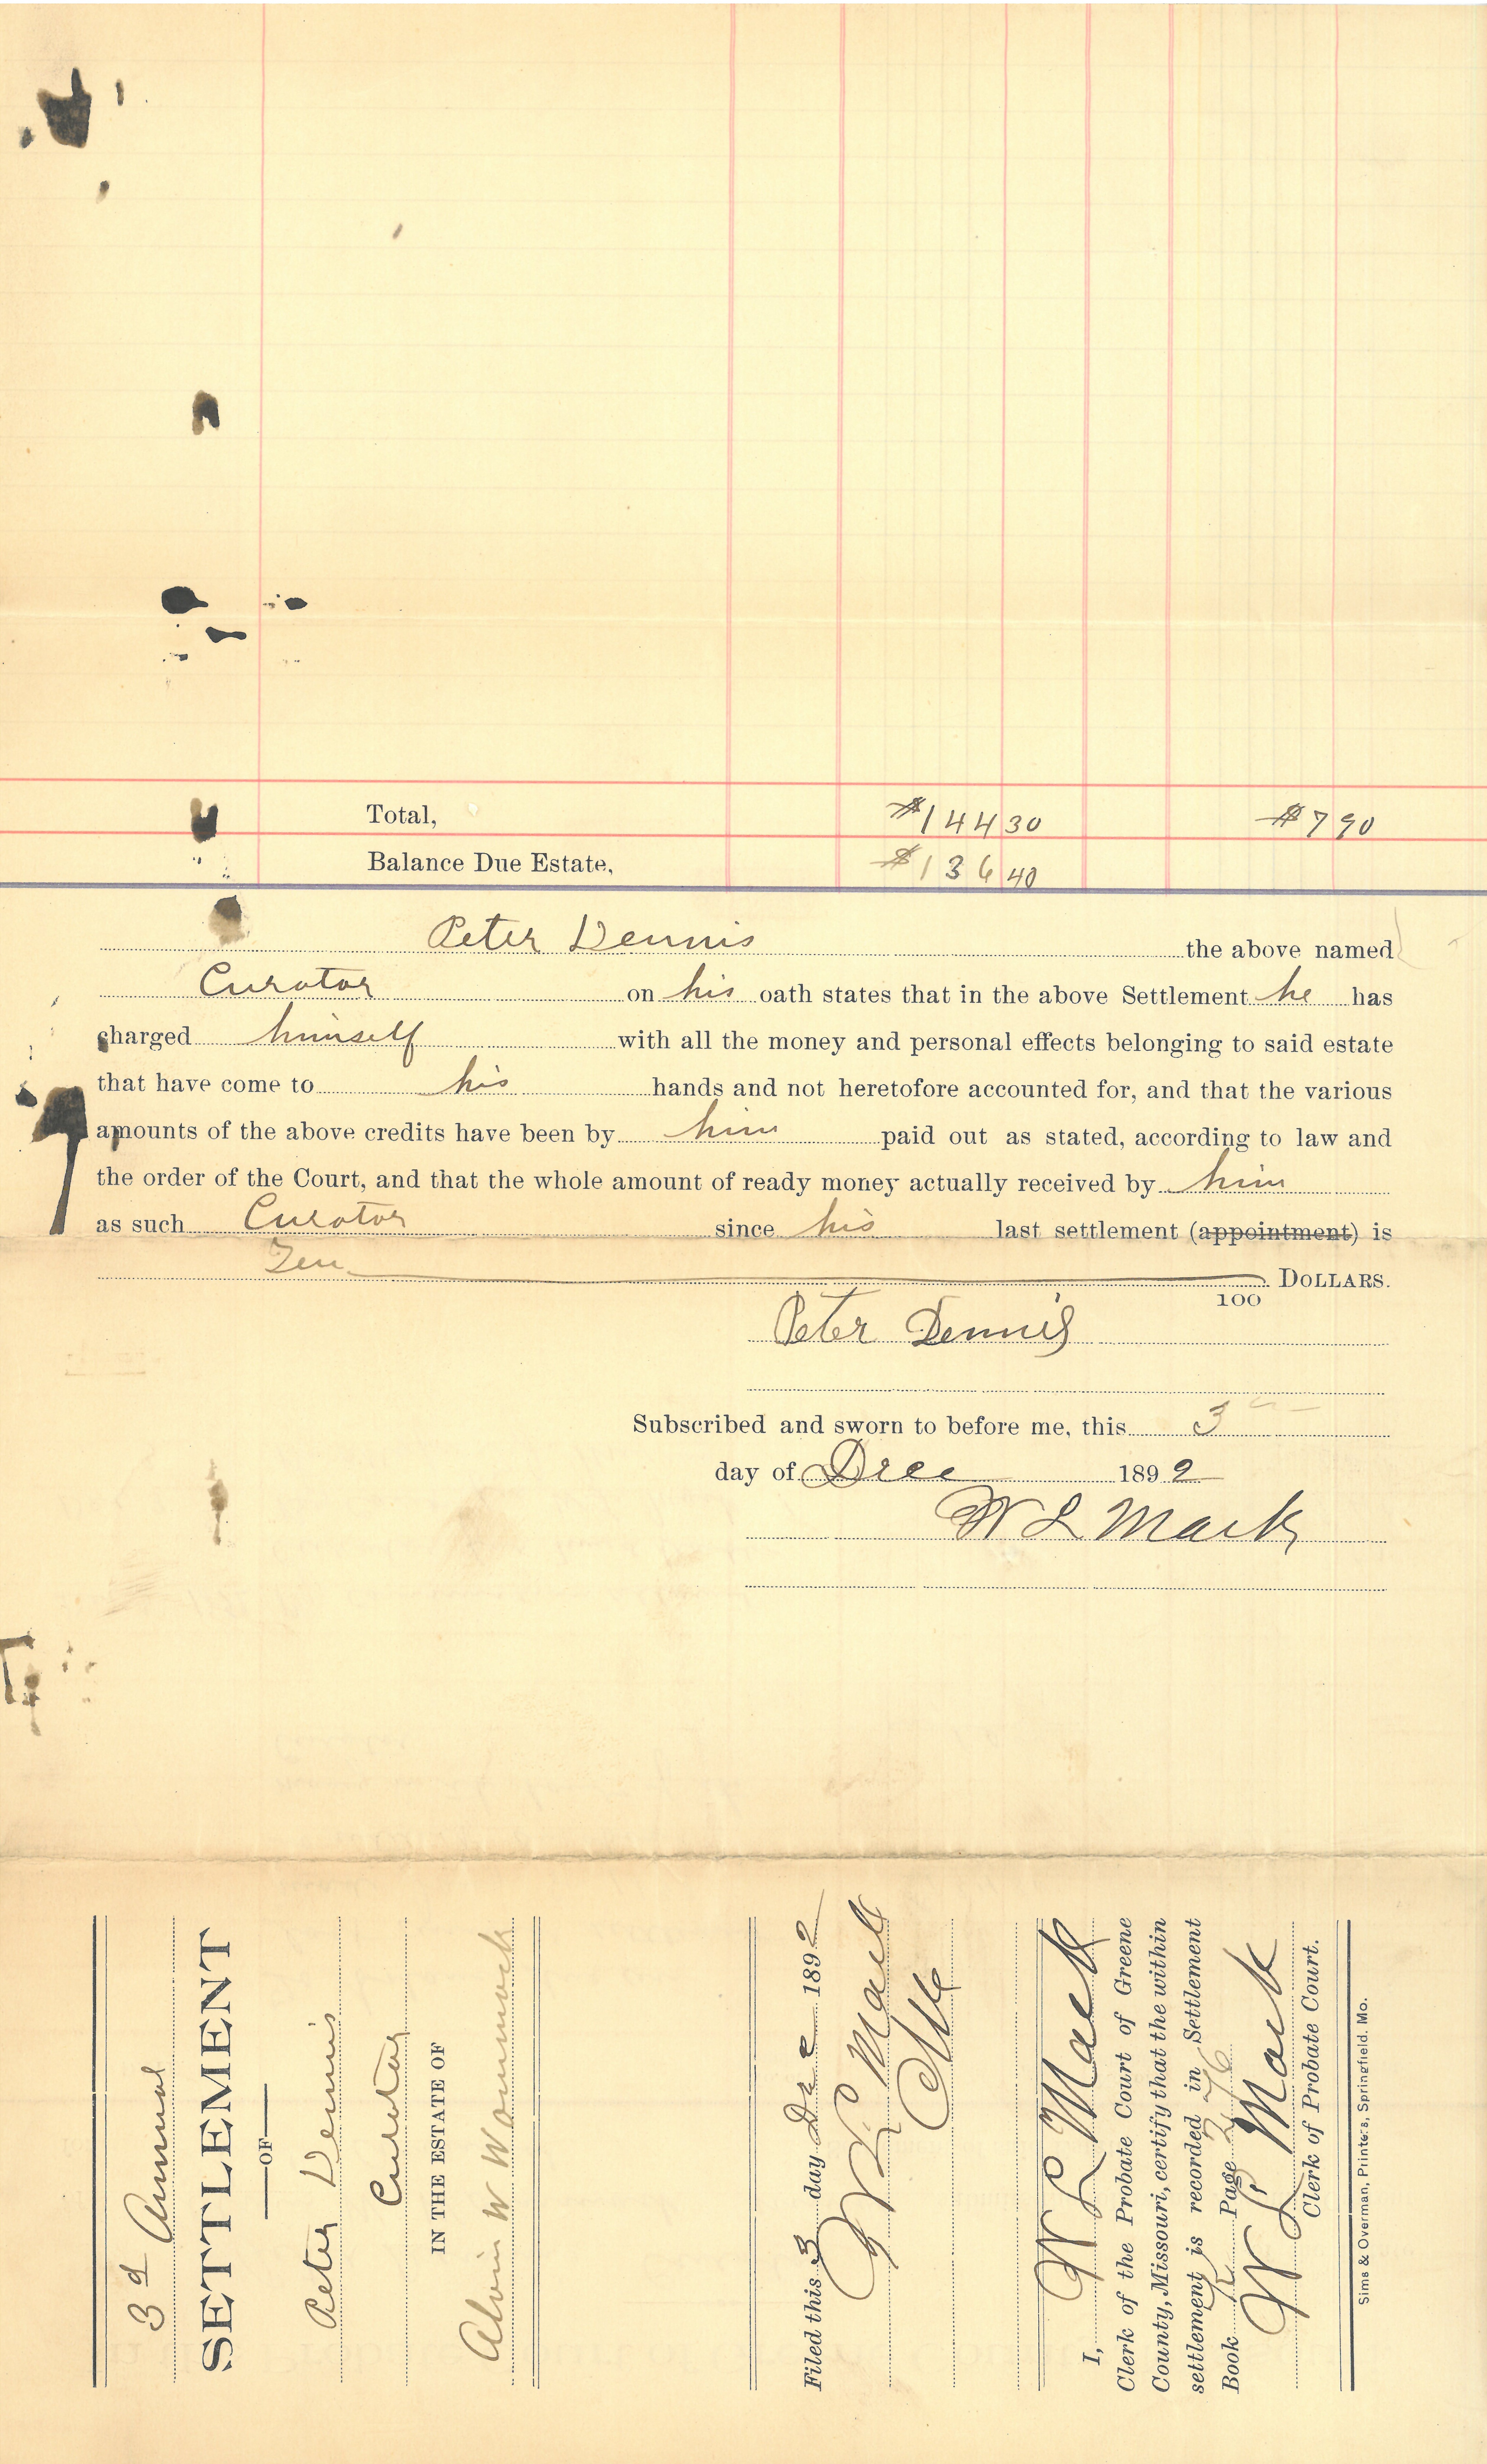 Total, $144 30 $7 90
Balance Due Estate, $136 40
Peter Dennis the above named
Curator on his oath states that in the above Settlement he has
charged himself with all the money and personal effects belonging to said estate
that have come to his hands and not heretofore accounted for, and that the various
amounts of the above credits have been by him paid out as stated, according to law and
the order of the Court, and that the whole amount of ready money actually received by him
as such Curator since his last settlement (appointment) is
Ten DOLLARS.
100
Peter Dennis
Subscribed and sworn to before me, this 3
day of Dec 1892
W L Mack
3d Annual
SETTLEMENT
OF
Peter Dennis
Curator
IN THE ESTATE OF
Alvin W Wommack
Filed this 3 day Dec 1892
W L Mack
Clk
I, W L Mack
Clerk of the Probate Court of Greene
County, Missouri, certify that the within
settlement is recorded in Settlement
Book Page 276
W L Mack
Clerk of Probate Court.
Sims & Overman, Printers, Springfield, Mo.